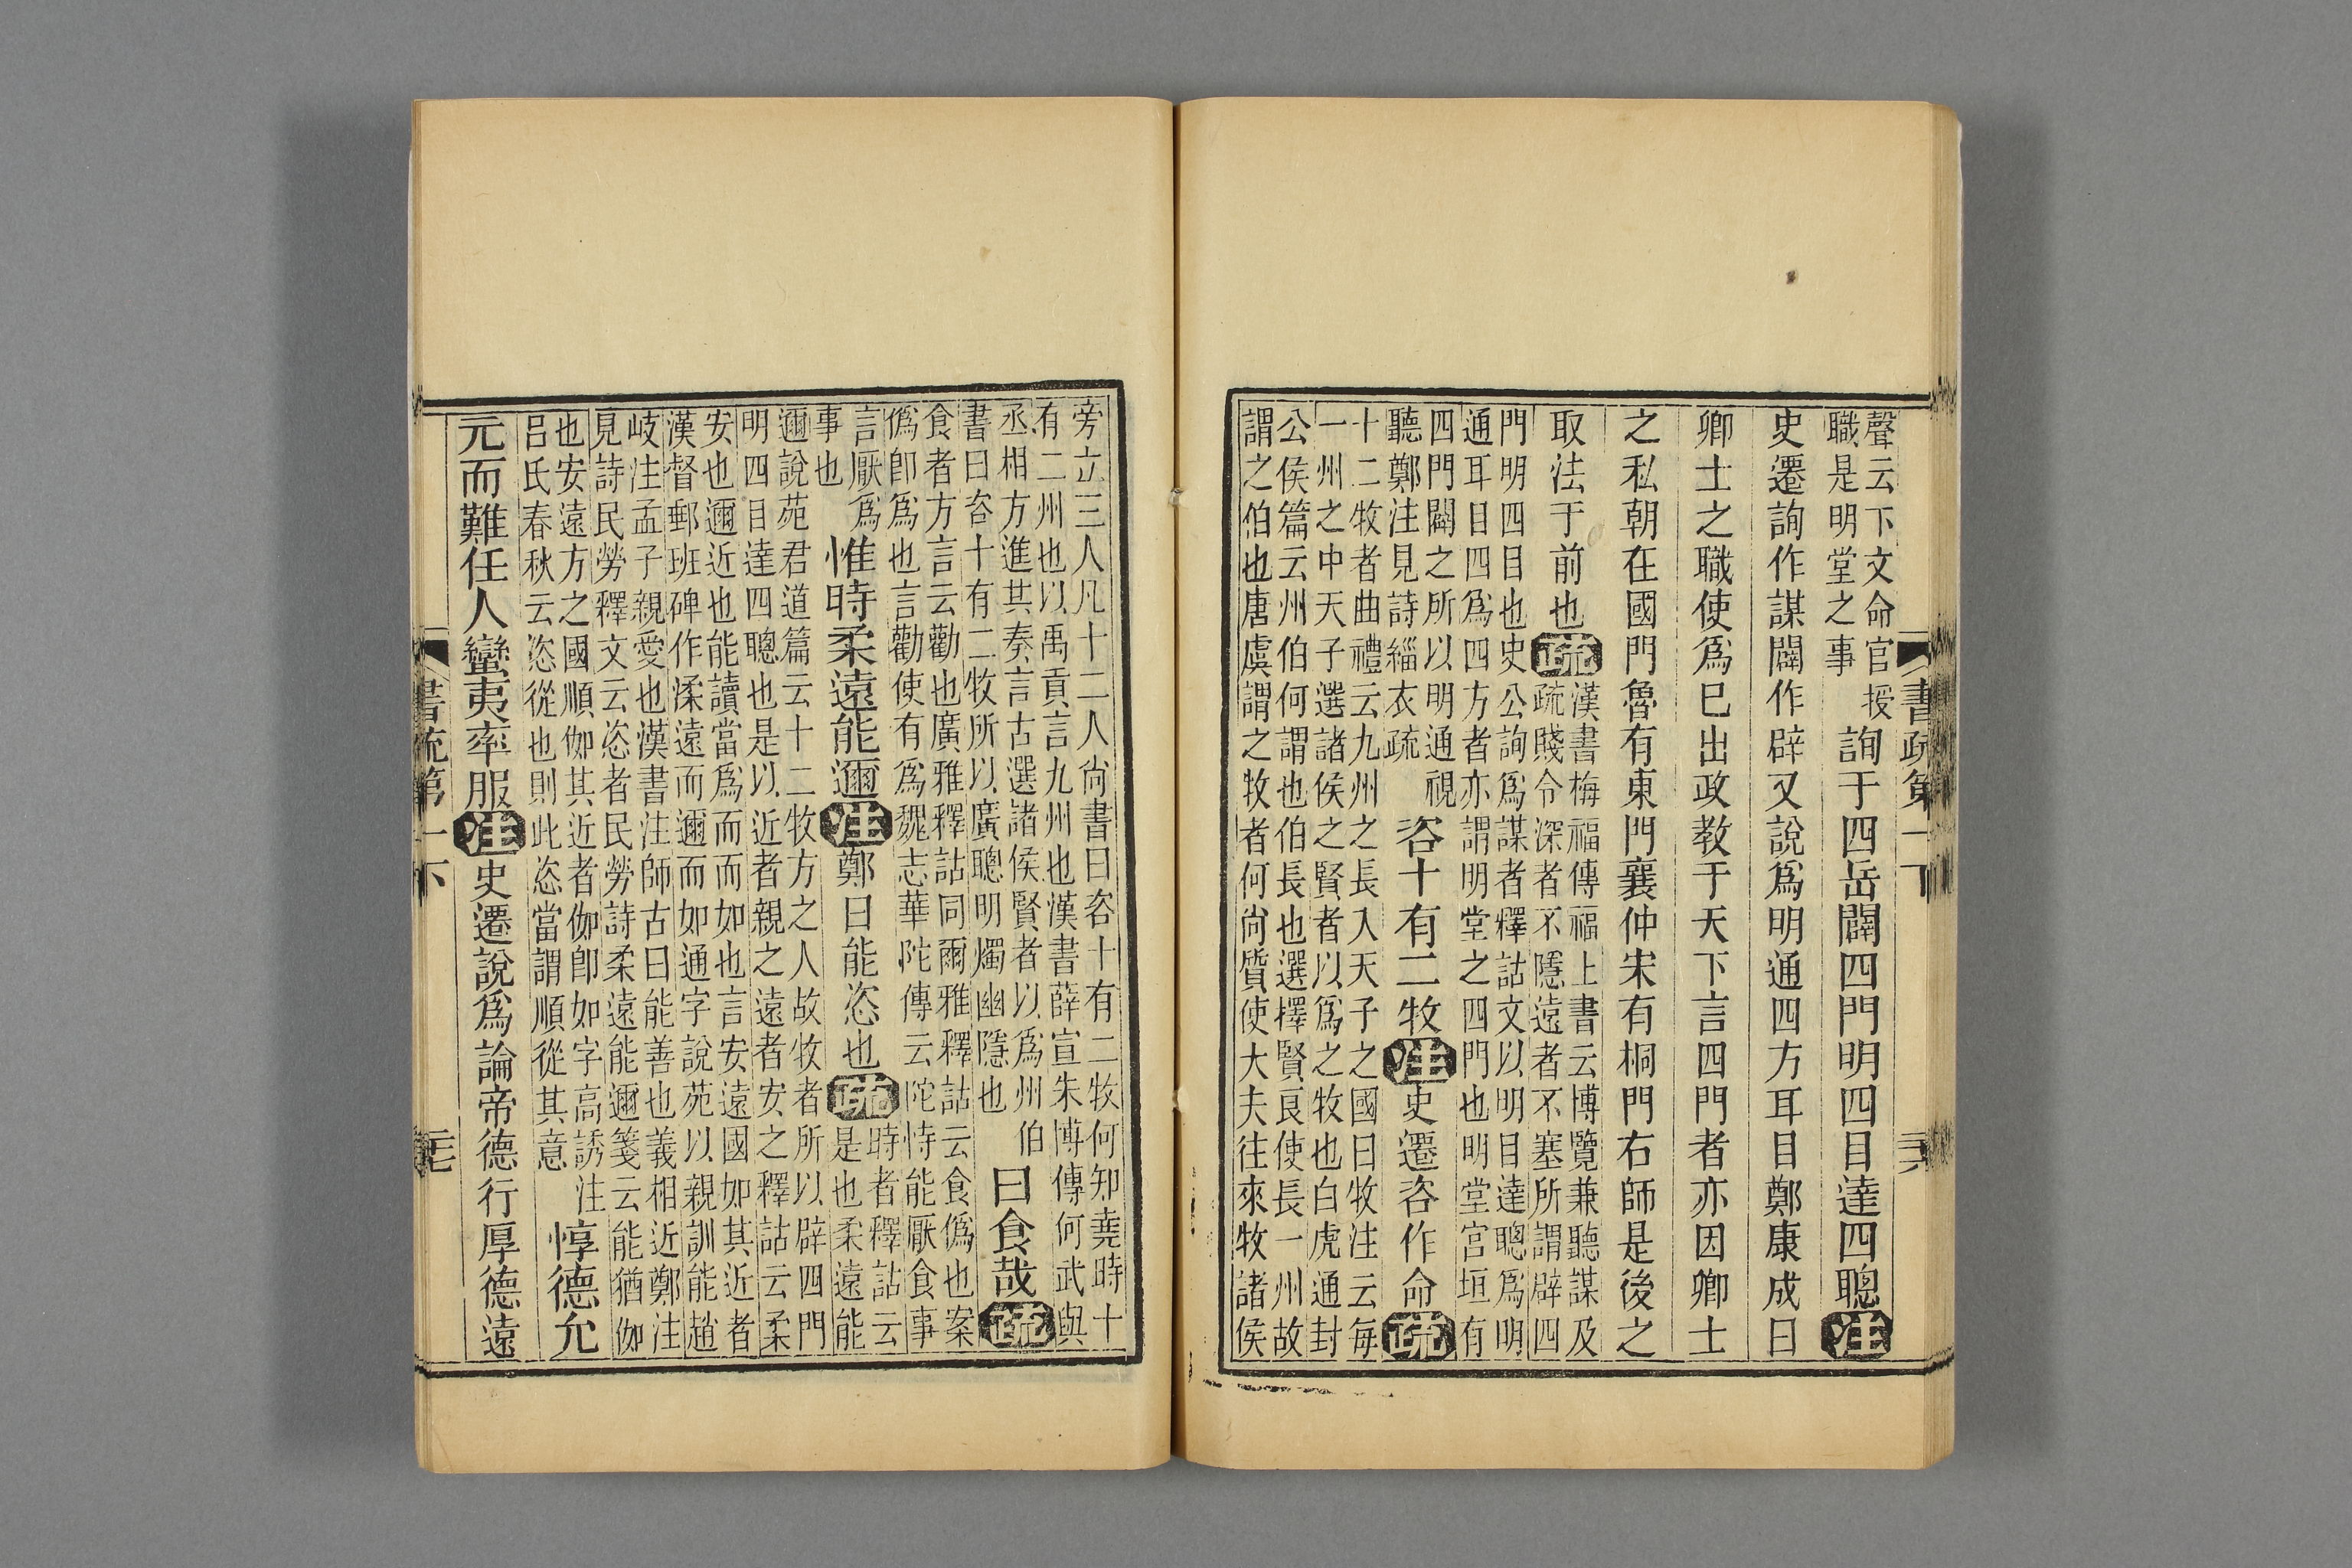 書疏第一下
聲云下文命官授
職是明堂之事
詢于四岳闢四門明四目達四聰注
史遷詢作謀闢作辟又說爲明通四方耳目鄭康成曰
卿士之職使爲已出政教于天下言四門者亦因卿士
之私朝在國門魯有東門襄仲宋有桐門右師是後之
取法于前也疏
漢書梅福傳福上書云博覽兼聽謀及
疏賤令深者不隱遠者不塞所謂辟四
門明四目也史公詢爲謀者釋詁文以明目達聰爲明
通耳目四爲四方者亦謂明堂之四門也明堂宮垣有
四門闢之所以明通視
聽鄭注見詩緇衣疏
咨十有二牧注史遷咨作命疏
十二牧者曲禮云九州之長入天子之國曰牧注云每
一州之中天子選諸侯之賢者以爲之牧也白虎通封
公侯篇云州伯何謂也伯長也選擇賢良使長一州故
謂之伯也唐虞謂之牧者何尚質使大夫往來牧諸侯
旁立三人凡十二人尚書曰咨十有二牧何知堯時十
有二州也以禹貢言九州也漢書薛宣朱博傳何武與
丞相方進其奏言古選諸侯賢者以爲州伯
書曰咨十有二牧所以廣聰明燭幽隱也
曰食哉疏
食者方言云勸也廣雅釋詁同爾雅釋詁云食僞也案
僞卽爲也言勸使有爲魏志華陀傳云陀恃能厭食事
言厭爲
事也
惟時柔遠能邇注鄭曰能恣也疏
時者釋詁云
是也柔遠能
邇說苑君道篇云十二牧方之人故牧者所以辟四門
明四目達四聰也是以近者親之遠者安之釋詁云柔
安也邇近也能讀當爲而而如也言安遠國如其近者
漢督郵班碑作渘遠而邇而如通字說苑以親訓能趙
岐注孟子親愛也漢書注師古曰能善也義相近鄭注
見詩民勞釋文云恣者民勞詩柔遠能邇箋云能猶伽
也安遠方之國順伽其近者伽卽如字高誘注
呂氏春秋云恣從也則此恣當謂順從其意
惇德允
元而難任人蠻夷率服注史遷說爲論帝德行厚德遠
書疏第一下